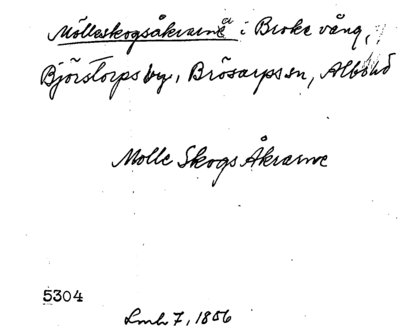 Mölleskogsåkrarna i Broke vång,
Björstorps by, Brösarps sn, Albo hd
Molle Skogs Åkrarne
5304
Lmh 7, 1806